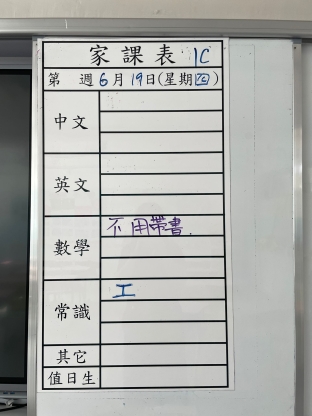 家課表 1C
第 週6月19日(星期四)
中文
英文
數學 不用帶書.
常識 工
其它
值日生